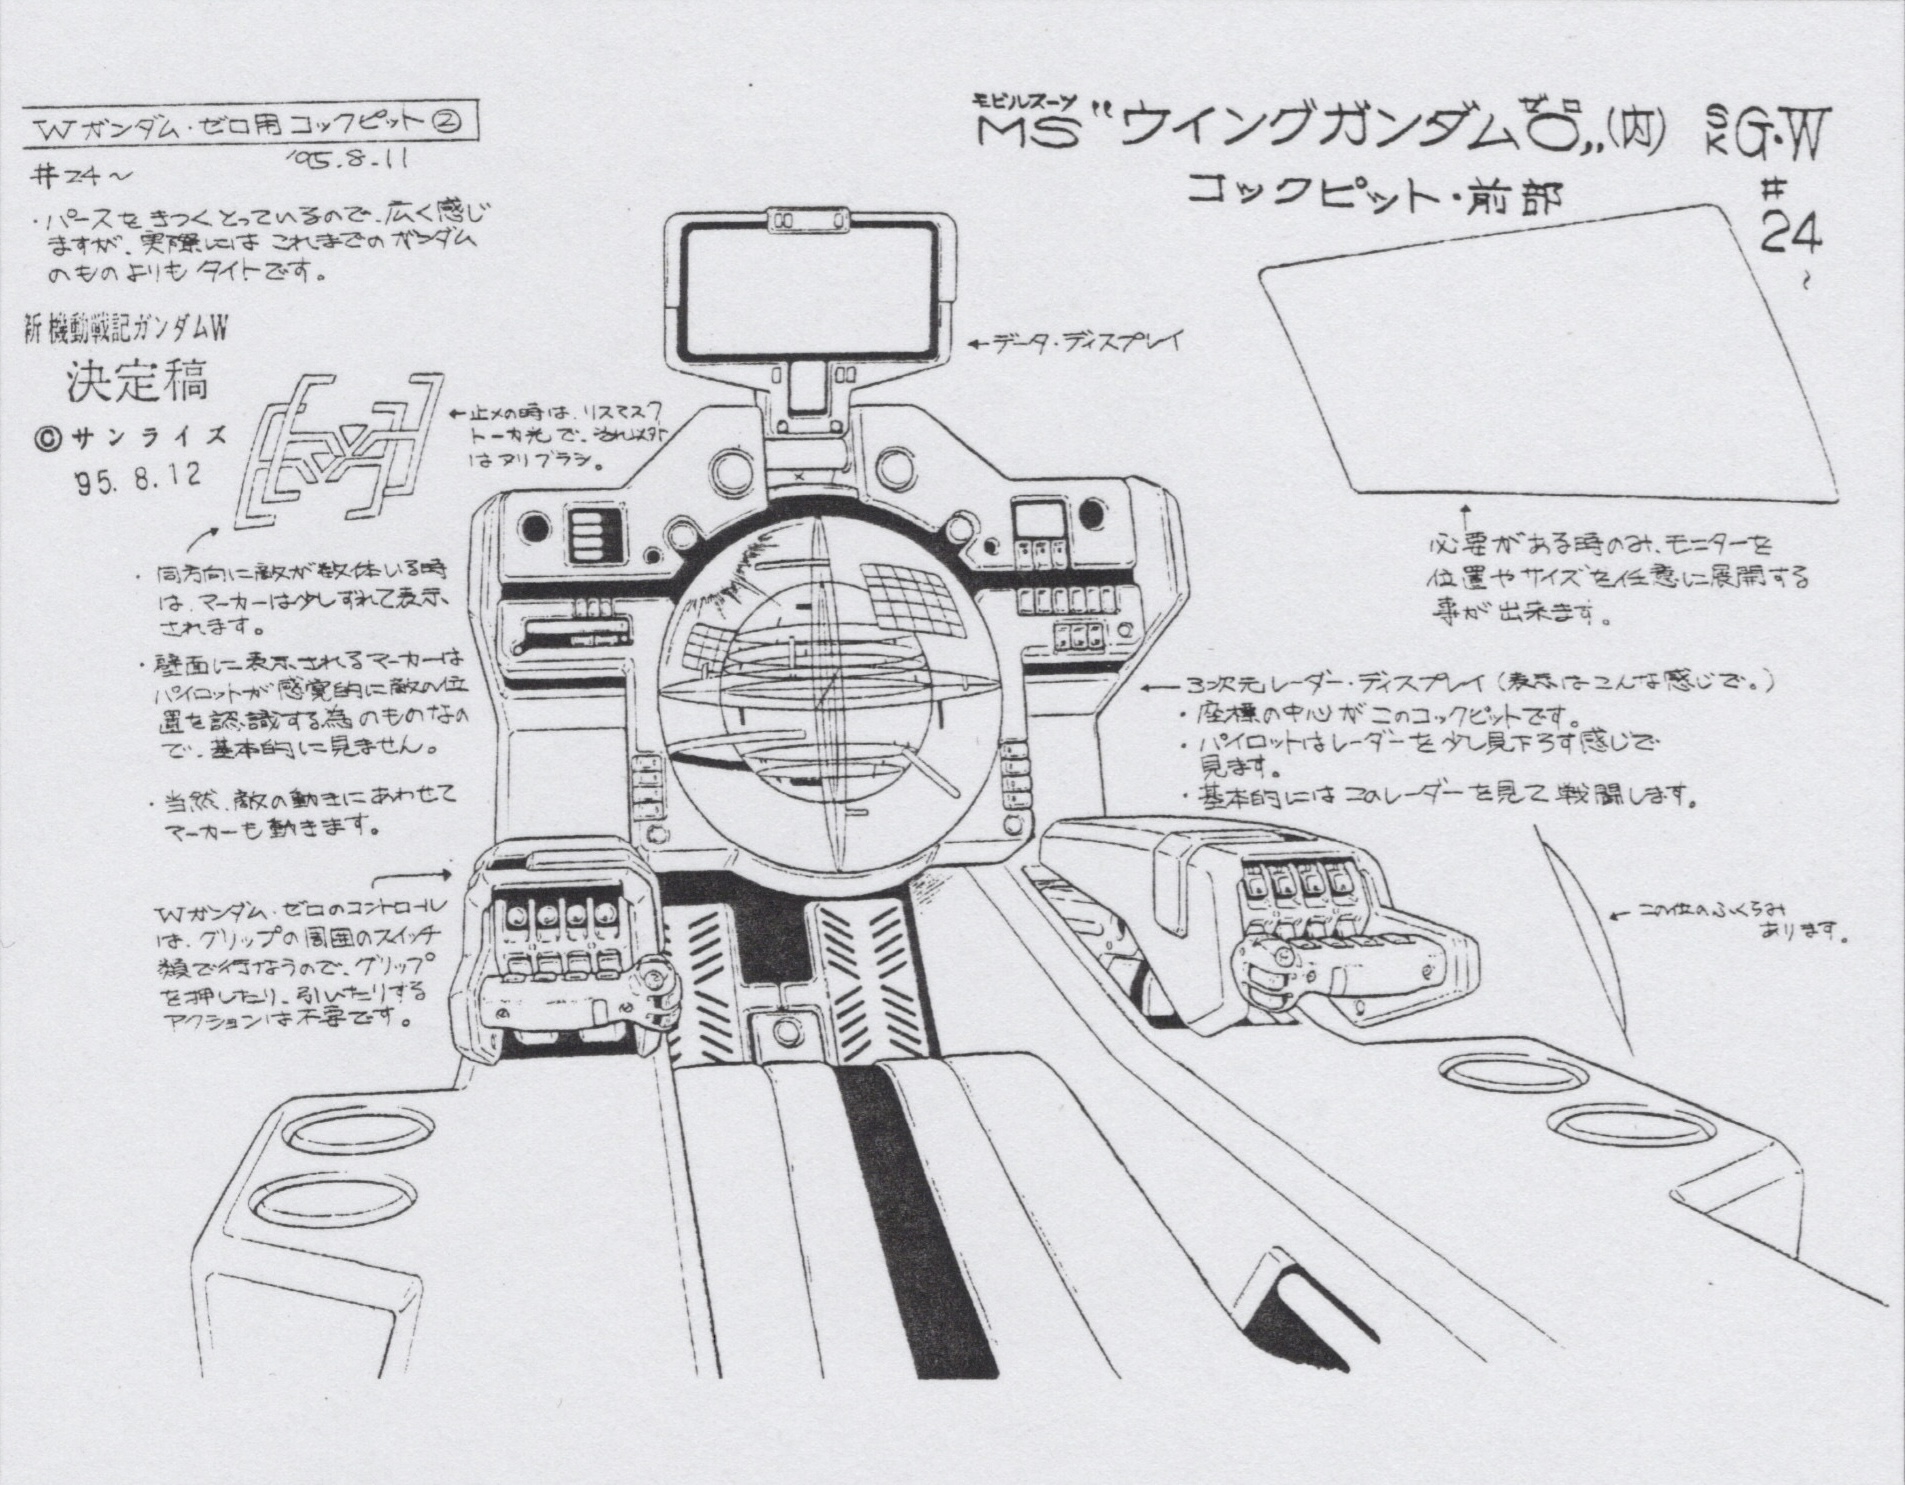 Wガンダム・ゼロ用 コックピット②
'95.8.11
#24~
・パースをきつくとっているので、広く感じ
ますが、実際にはこれまでのガンダム
のものよりもタイトです。
新機動戦記ガンダムW
決定稿
©サンライズ
'95.8.12
モビルスーツ ゼロ
MS"ウイングガンダム0"(内)
SK G・W
コックピット・前部
#
24
~
←データ・ディスプレイ
←止メの時は、リスマスク
トーカ光で、それ以外
はヌリブラシ。
・同方向に敵が数体いる時
は、マーカーは少しずれて表示
されます。
・壁面に表示されるマーカーは
パイロットが感覚的に敵の位
置を認識する為のものなの
で、基本的に見ません。
・当然、敵の動きにあわせて
マーカーも動きます。
Wガンダム・ゼロのコントロール
は、グリップの周囲のスイッチ
類で行なうので、グリップ
を押したり、引いたりする
アクションは不要です。
必要がある時のみ、モニターを
位置やサイズを任意に展開する
事が出来ます。
←3次元レーダー・ディスプレイ(表示はこんな感じで。)
・座標の中心がこのコックピットです。
・パイロットはレーダーを少し見下ろす感じで
見ます。
・基本的にはこのレーダーを見て戦闘します。
←この位のふくらみ
あります。